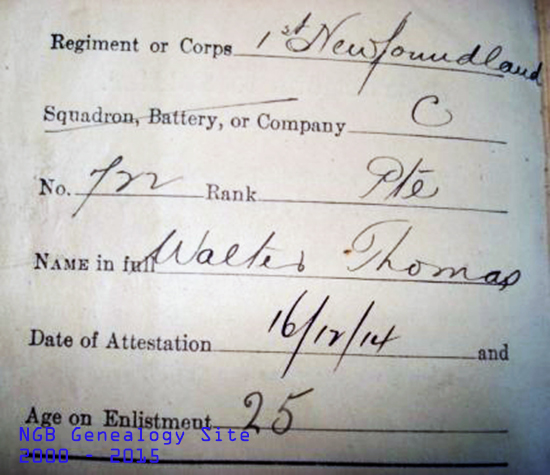 Regiment or Corps 1st Newfoundland
Squadron, Battery, or Company C
No. 722 Rank Pte
NAME in full Walter Thomas
Date of Attestation 16/12/14 and
Age on Enlistment 25
NGB Genealogy Site
2000 - 2015